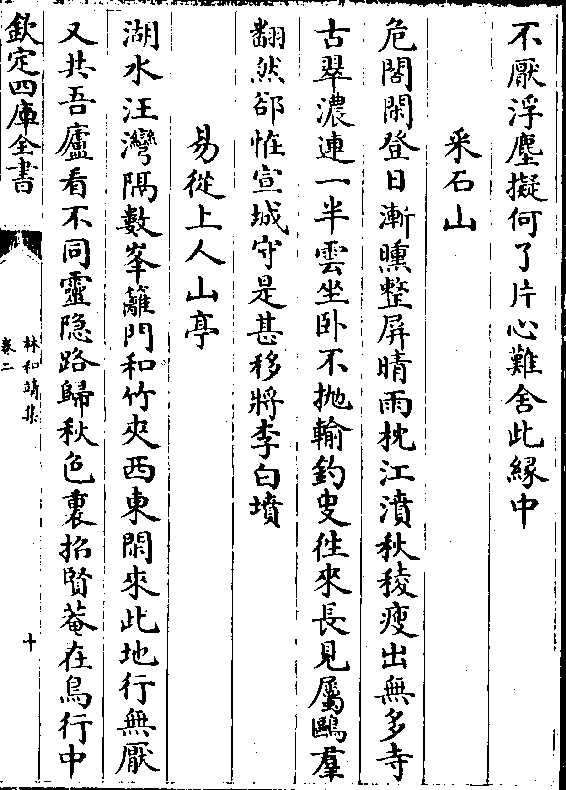 不厭浮塵擬何了片心難舍此緣中
采石山
危閣閑登日漸曛整屏晴雨枕江濆秋稜瘦出無多寺
古翠濃連一半雲坐臥不抛輸釣叟徃來長見屬鷗羣
翻然郤恠宣城守是甚移將李白墳
易從上人山亭
湖水汪灣隔數峯籬門和竹夾西東閑來此地行無厭
又共吾廬看不同靈隱路歸秋色裏招賢菴在鳥行中
欽定四庫全書
林和靖集
卷二
十